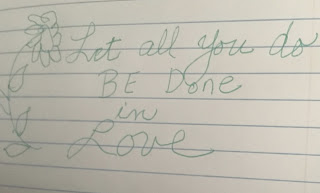 Let all you do
BE Done
in
Love